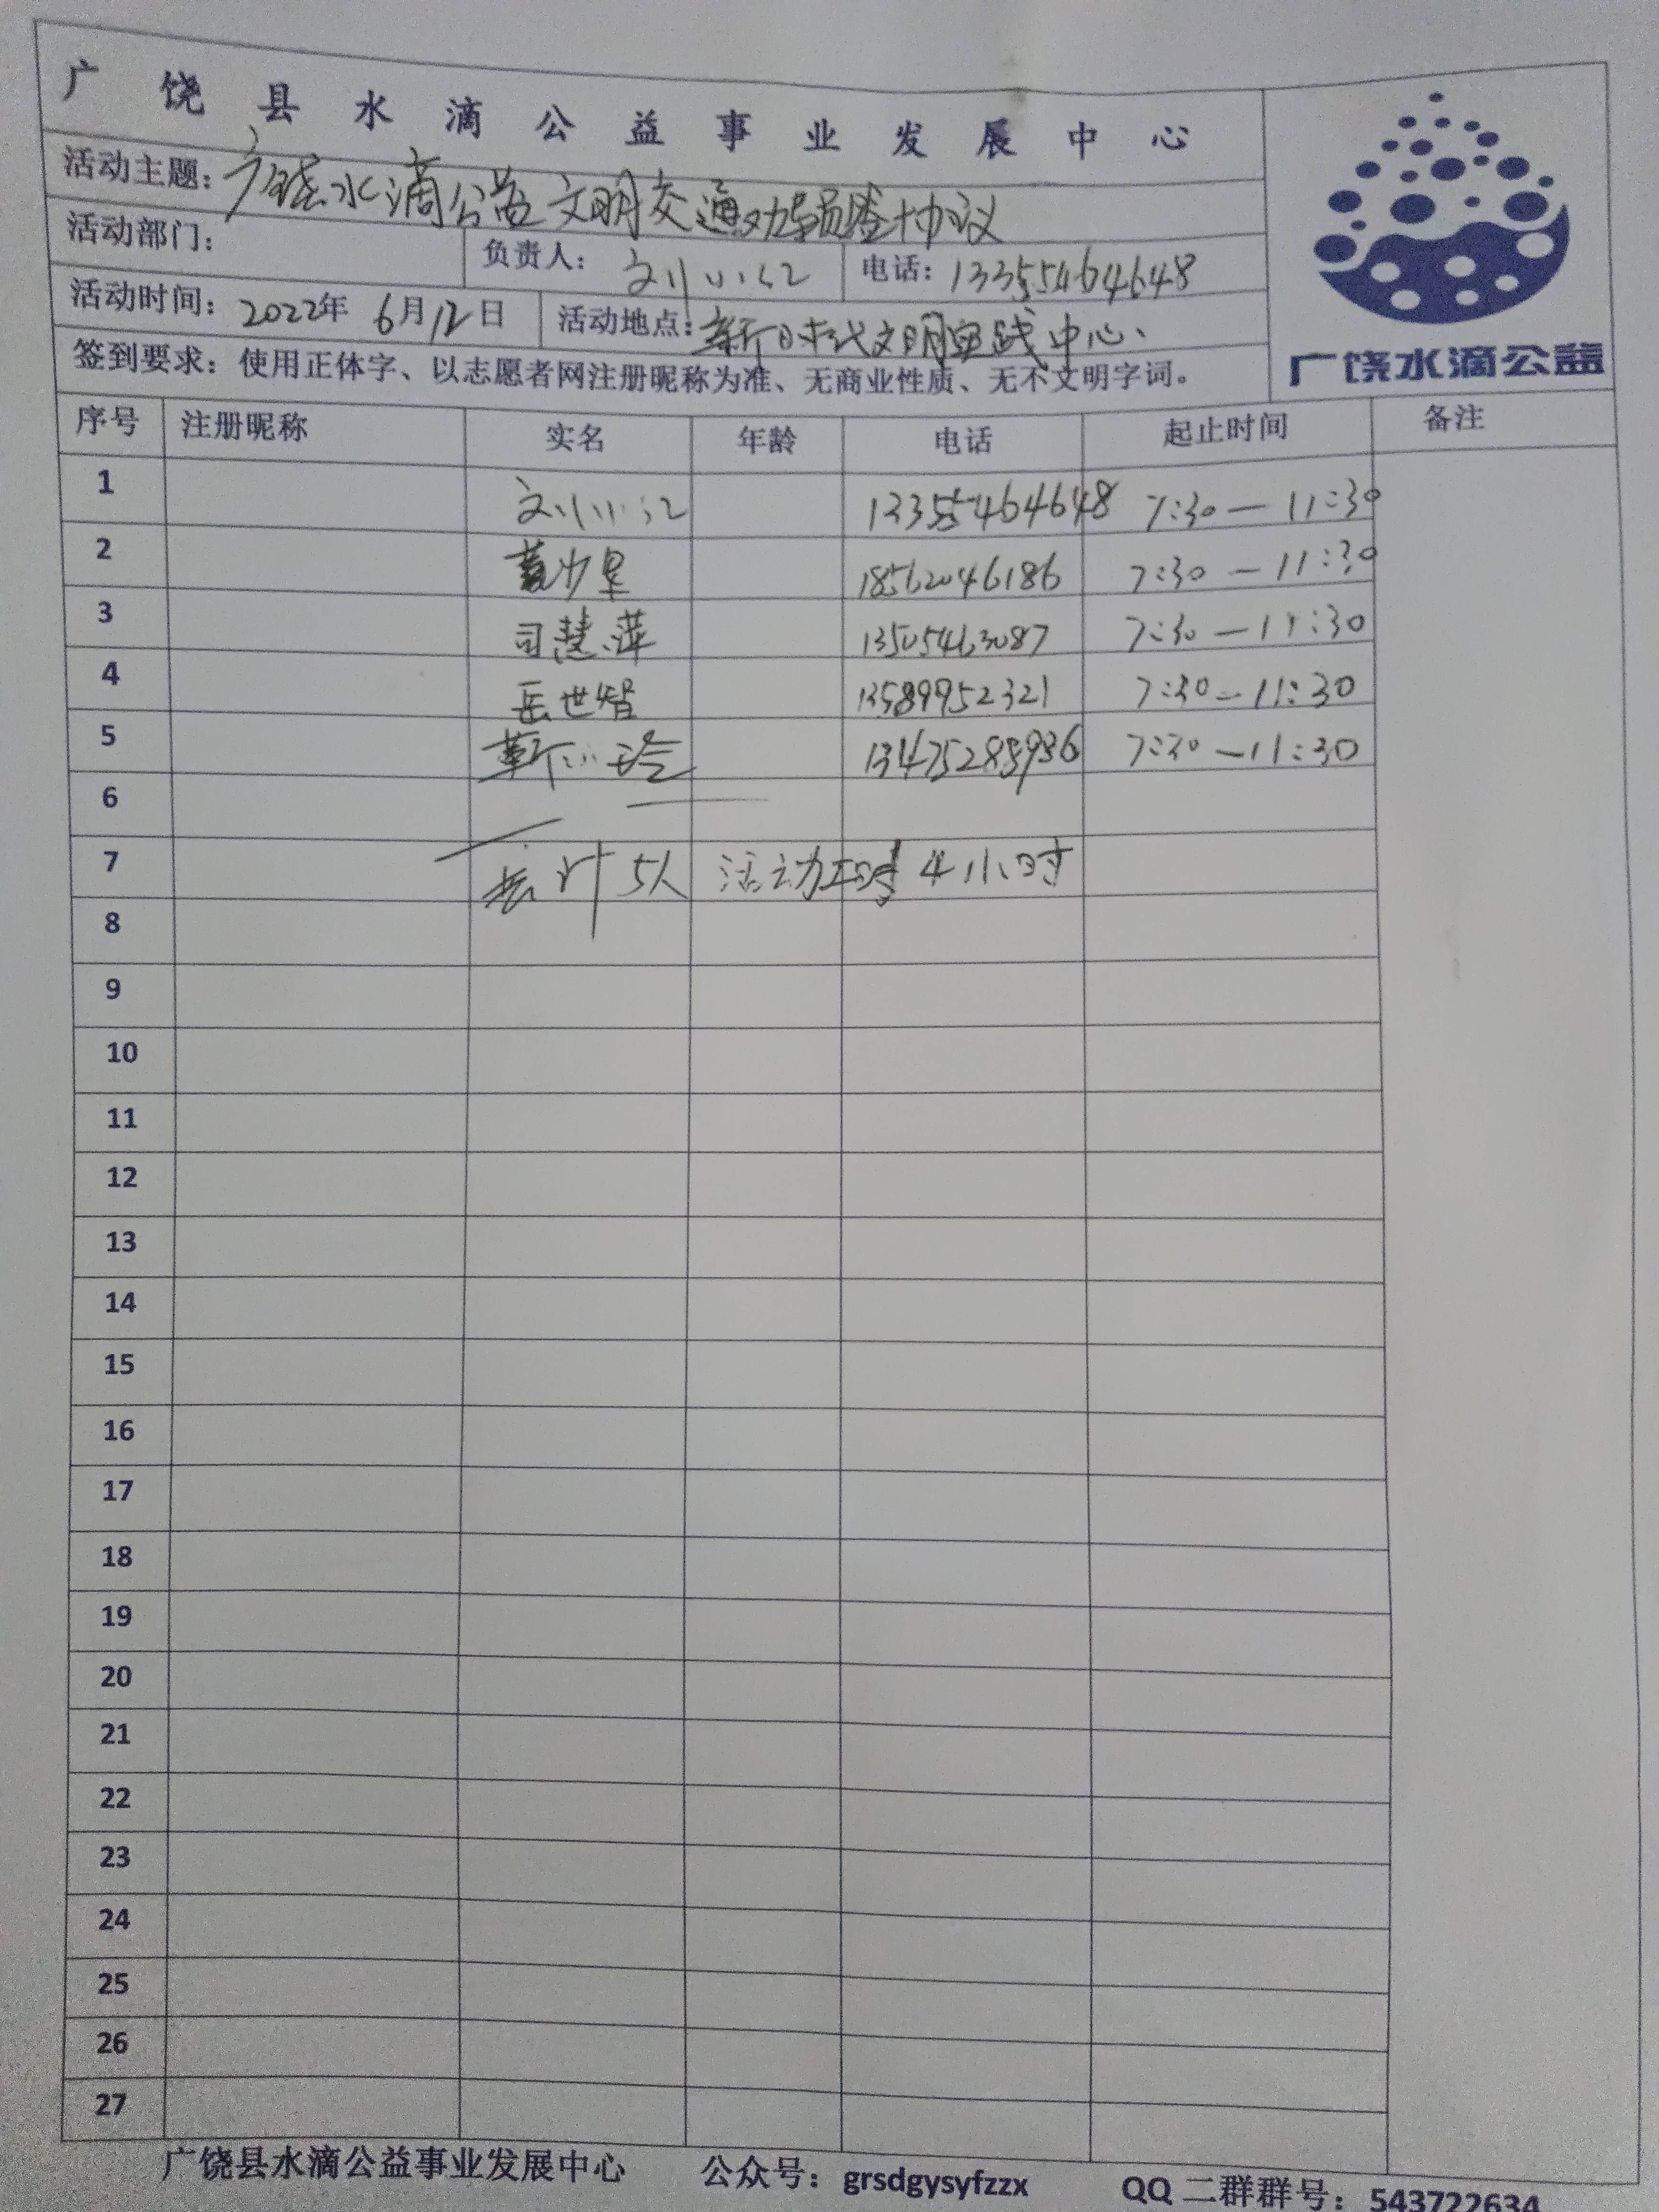 广饶县水滴公益事业发展中心
活动主题：广饶水滴公益文明交通劝导员签协议
活动部门：
负责人：刘小江 电话：13355464648
活动时间：2022年6月12日 活动地点：新时代文明实践中心
签到要求：使用正体字、以志愿者网注册昵称为准、无商业性质、无不文明字词。
广饶水滴公益
序号 注册昵称 实名 年龄 电话 起止时间 备注
1 刘小江 13355464648 7:30—11:30
2 18562046186 7:30—11:30
3 司慧萍 13505463087 7:30—11:30
4 岳世智 13589952321 7:30—11:30
5 靳小玲 13475285936 7:30—11:30
6
7 共计5人 活动工时4小时
8
9
10
11
12
13
14
15
16
17
18
19
20
21
22
23
24
25
26
27
广饶县水滴公益事业发展中心 公众号：grsdgysyfzzx QQ二群群号：543722634